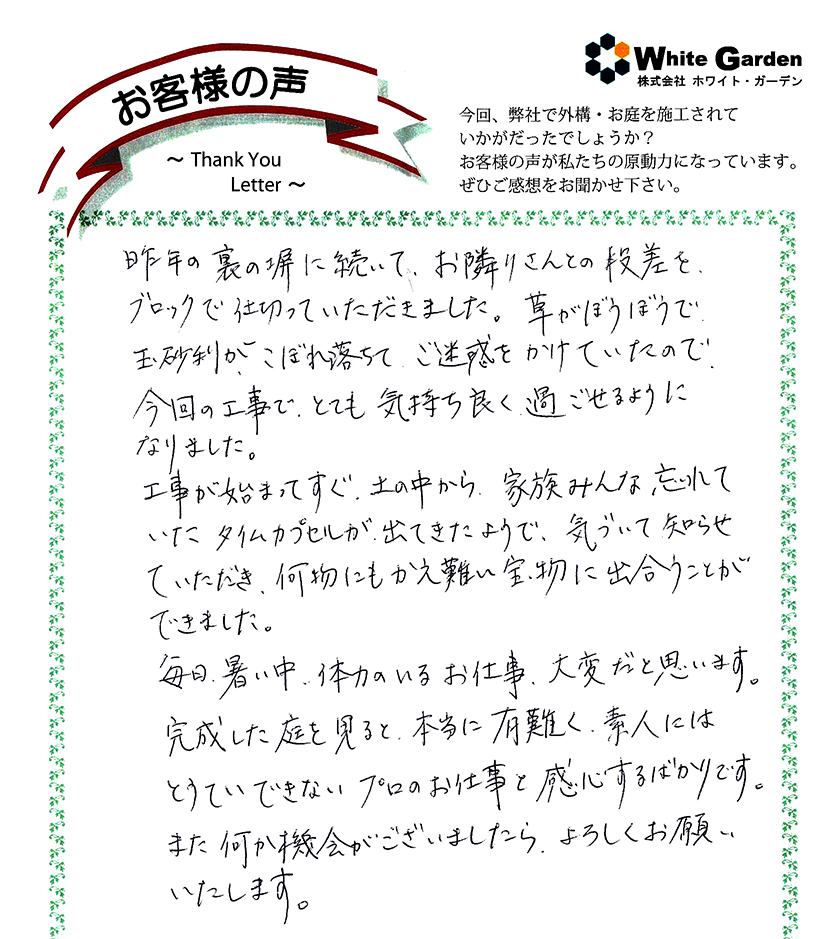 お客様の声
～ Thank You
Letter ～
White Garden
株式会社 ホワイト・ガーデン
今回、弊社で外構・お庭を施工されて
いかがだったでしょうか？
お客様の声が私たちの原動力になっています。
ぜひご感想をお聞かせ下さい。
昨年の裏の塀に続いて、お隣りさんとの段差を、
ブロックで仕切っていただきました。草がぼうぼうで、
玉砂利が、こぼれ落ちて、ご迷惑をかけていたので、
今回の工事で、とても気持ち良く過ごせるように
なりました。
工事が始まってすぐ、土の中から、家族みんな忘れて
いた タイムカプセルが、出てきたようで、気づいて知らせ
ていただき、何物にもかえ難い宝物に出合うことが
できました。
毎日、暑い中、体力のいるお仕事、大変だと思います。
完成した庭を見ると、本当に有難く、素人には
とうていできないプロのお仕事と感心するばかりです。
また何か機会がございましたら、よろしくお願い
いたします。